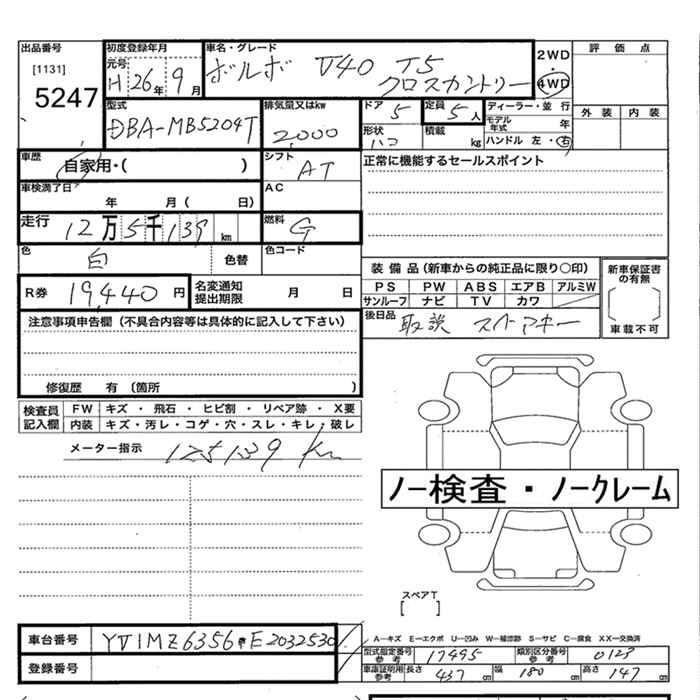 出品番号
[1131]
5247
初度登録年月
元号
H 26年 9月
車名・グレード
ボルボ V40 T5
クロスカントリー
2WD
・
4WD
評価点
外装 内装
型式
DBA-MB5204T
排気量又はkw
2,000
ドア 5
定員 5人
形状 ハコ
積載 kg
ディーラー・並行
モデル年式 年
ハンドル 左・右
車歴
自家用・( )
シフト
AT
正常に機能するセールスポイント
車検満了日
年 月( 日)
AC
走行
12万5千139km
燃料
G
色
白
色替
色コード
R券 19,440円
名変通知
提出期限
月 日
装備品(新車からの純正品に限り○印)
PS PW ABS エアB アルミW
サンルーフ ナビ TV カワ
後日品 取説 スペアキー
新車保証書
の有無
車載不可
注意事項申告欄(不具合内容等は具体的に記入して下さい)
修復歴 有(箇所 )
検査員
記入欄
FW キズ・飛石・ヒビ割・リペア跡・X要
内装 キズ・汚レ・コゲ・穴・スレ・キレ・破レ
メーター指示 125139 Km
ノー検査・ノークレーム
スペアT
[ ]
車台番号 YV1MZ6356*E2032530
登録番号
A-キズ E-エクボ U-凹み W-補修跡 S-サビ C-腐食 XX-交換済
型式指定番号
参考
17495
類別区分番号
参考
0123
車庫証明用
参考
長さ 437cm
幅 180cm
高さ 147cm